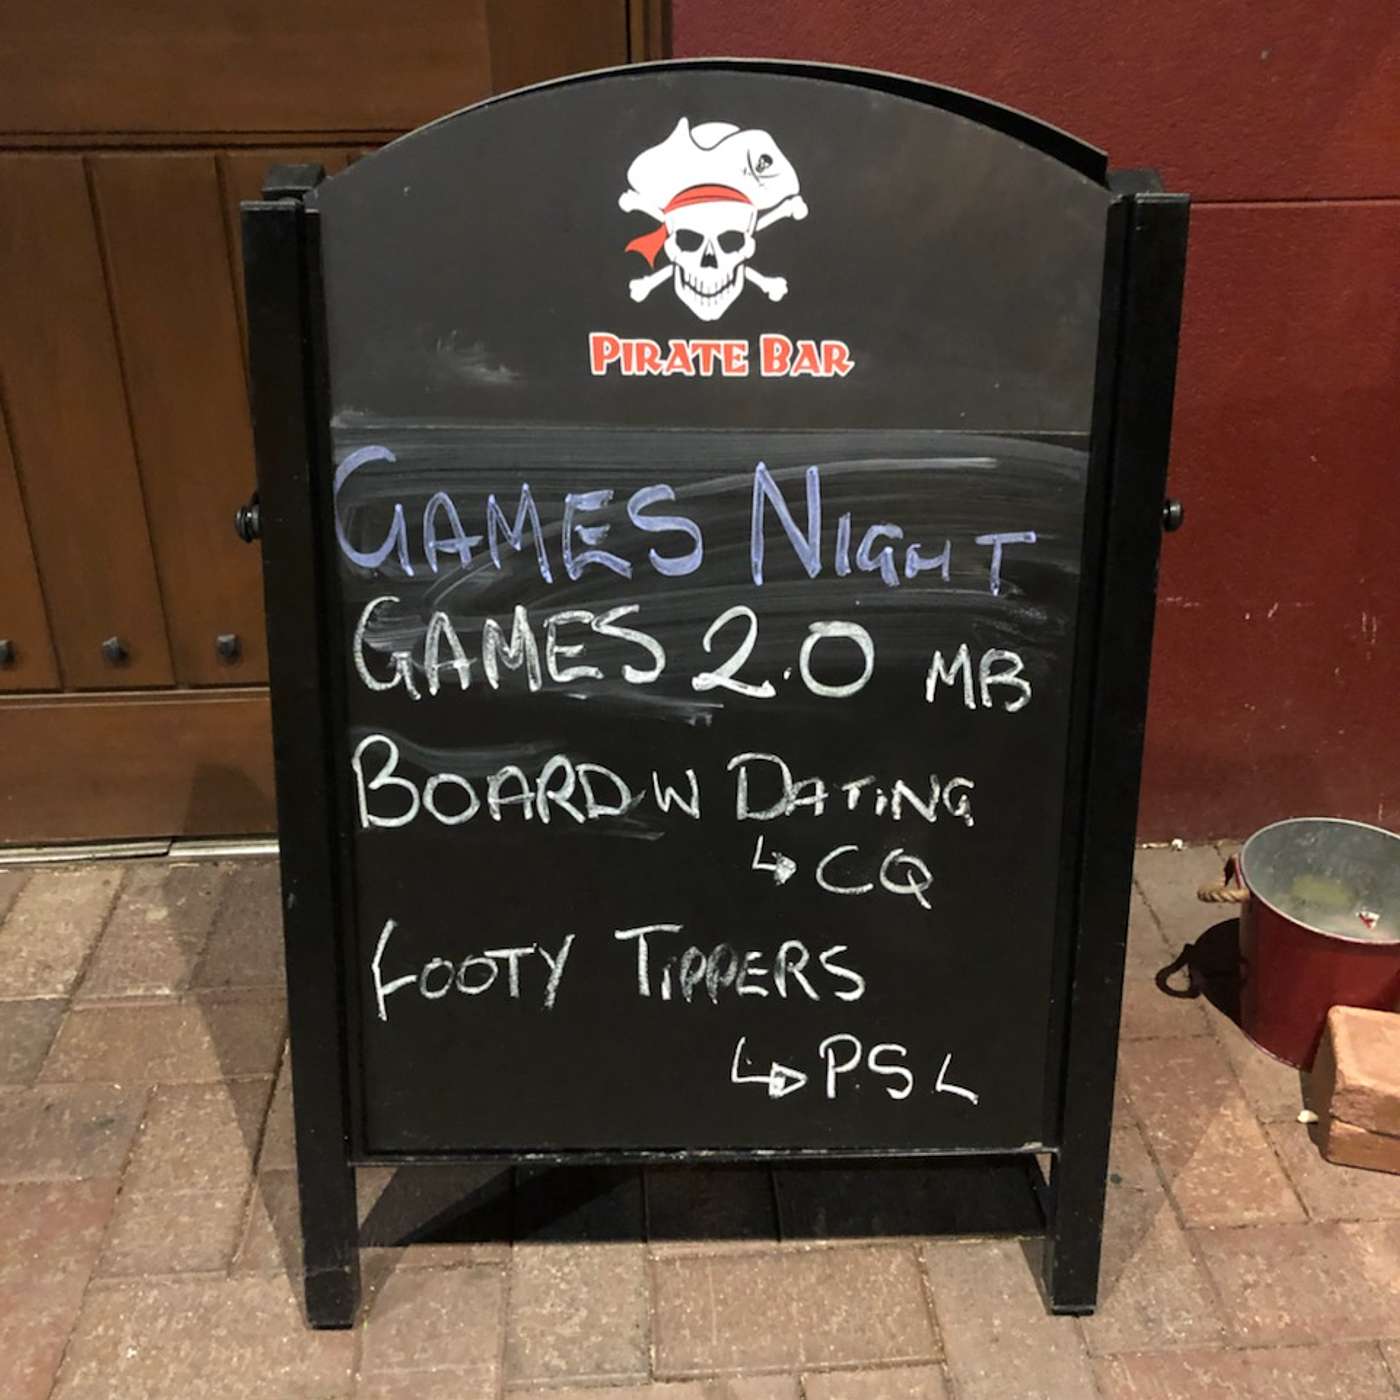 PIRATE BAR
GAMES NIGHT
GAMES 2.0 MB
BOARD W DATING
↳ CQ
FOOTY TIPPERS
↳ PSL